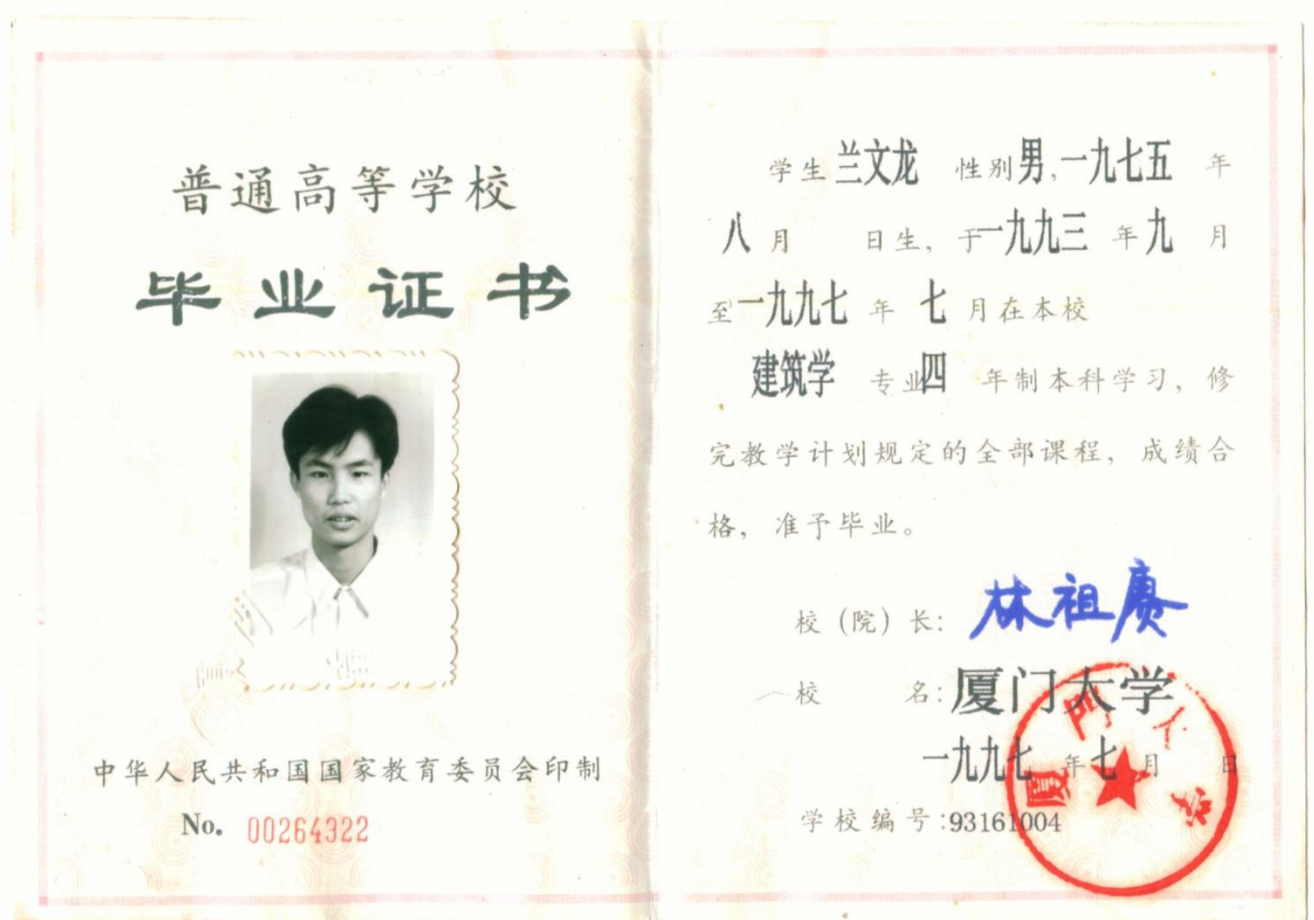 普通高等学校
毕业证书
中华人民共和国国家教育委员会印制
No. 00264322
学生兰文龙 性别男,一九七五 年
八月 日生, 于一九九三 年九 月
至一九九七 年 七 月在本校
建筑学 专业四 年制本科学习, 修
完教学计划规定的全部课程, 成绩合
格, 准予毕业。
校(院)长: 林祖赓
校 名: 厦门大学
一九九七 年七月 日
学校编号:93161004
厦門大学